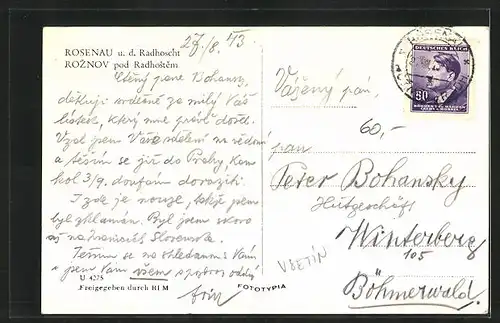 27/8. 43
ROSENAU u. d. Radhoscht
ROŽNOV pod Radhoštěm
Ctěný pane Bohanský
děkuji srdečně za milý Váš
lístek, který mne právě došel.
Vzal jsem Vaše sdělení na vědomí
a těším se již do Prahy, kam
kol 3/9. doufám doraziti.
I zde je nouze, takže jsem
byl zklamán. Byl jsem skoro
až na hranicích Slovenska.
Těším se na shledanou s Vámi
jsem Vám všem oddaný
U 4275
Freigegeben durch RLM
FOTOTYPIA
DEUTSCHES REICH
60
BÖHMEN U. MÄHREN
ČECHY A MORAVA
Vážený pán,
60,-
pan
Peter Bohansky
Hutgeschäft
Winterberg
105
Böhmerwald.
VSETÍN